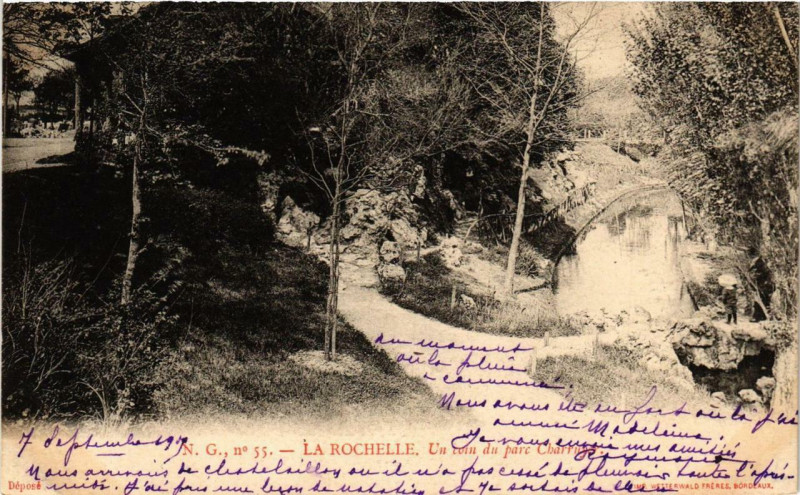 au moment
où la pluie
a commencé
Nous avons été en fort où j'ai
amusé Madeleine
Je vous envoie mes amitiés
7 Septembre
N. G., nº 55. — LA ROCHELLE. Un coin du parc Charruyer
Nous arrivons de chatelaillon où il n'a pas cessé de pleuvoir toute l'après-
midi. J'ai pris une leçon de natation et je sortais de
Déposé
IMP. WETTERWALD FRÈRES, BORDEAUX.